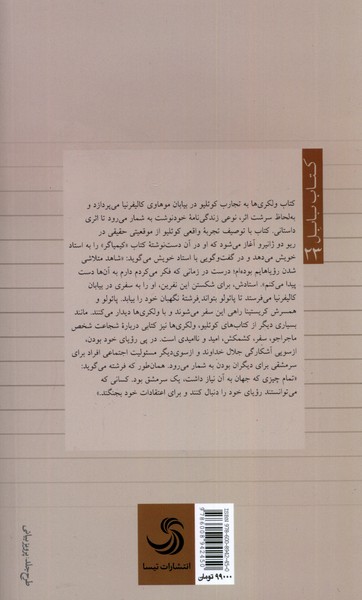 کتاب بابل
۴۶
کتاب ولکری‌ها به تجارب کوئلیو در بیابان موهاوی کالیفرنیا می‌پردازد و
به‌لحاظ سرشت اثر، نوعی زندگی‌نامهٔ خودنوشت به شمار می‌رود تا اثری
داستانی. کتاب با توصیف تجربهٔ واقعی کوئلیو از موقعیتی حقیقی در
ریو دو ژانیرو آغاز می‌شود که او در آن دست‌نوشتهٔ کتاب «کیمیاگر» را به استاد
خویش می‌دهد و در گفت‌وگویی با استاد خویش می‌گوید: «شاهد متلاشی
شدن رؤیاهایم بوده‌ام؛ درست در زمانی که فکر می‌کردم دارم به آن‌ها دست
پیدا می‌کنم». استادش، برای شکستن این نفرین، او را به سفری در بیابان
کالیفرنیا می‌فرستد تا پائولو بتواند فرشتهٔ نگهبان خود را بیابد. پائولو و
همسرش کریستینا راهی این سفر می‌شوند و با ولکری‌ها دیدار می‌کنند. مانند
بسیاری دیگر از کتاب‌های کوئلیو، ولکری‌ها نیز کتابی دربارهٔ شجاعت شخص
ماجراجو، سفر، کشمکش، امید و ناامیدی است. در پی رؤیای خود بودن،
ازسویی آشکارگی جلال خداوند و ازسوی‌دیگر مسئولیت اجتماعی افراد برای
سرمشقی برای دیگران بودن به شمار می‌رود. همان‌طور که فرشته می‌گوید:
«تمام چیزی که جهان به آن نیاز داشت، یک سرمشق بود. کسانی که
می‌توانستند رؤیای خود را دنبال کنند و برای اعتقادات خود بجنگند.»
طرح جلد: پرویز بیانی
انتشارات نیسا
ISBN 978-600-8942-45-0
9 786008 942450
۹۹۰۰۰ تومان